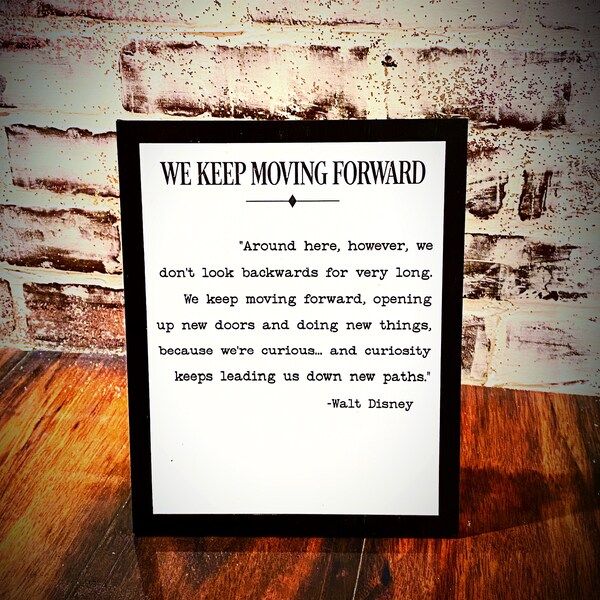 WE KEEP MOVING FORWARD
"Around here, however, we
don't look backwards for very long.
We keep moving forward, opening
up new doors and doing new things,
because we're curious... and curiosity
keeps leading us down new paths."
-Walt Disney